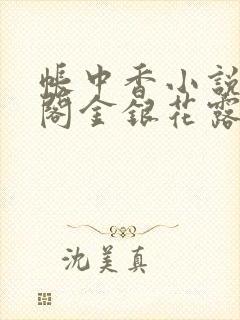 帐中香小說
閣金銀花露
沈美真